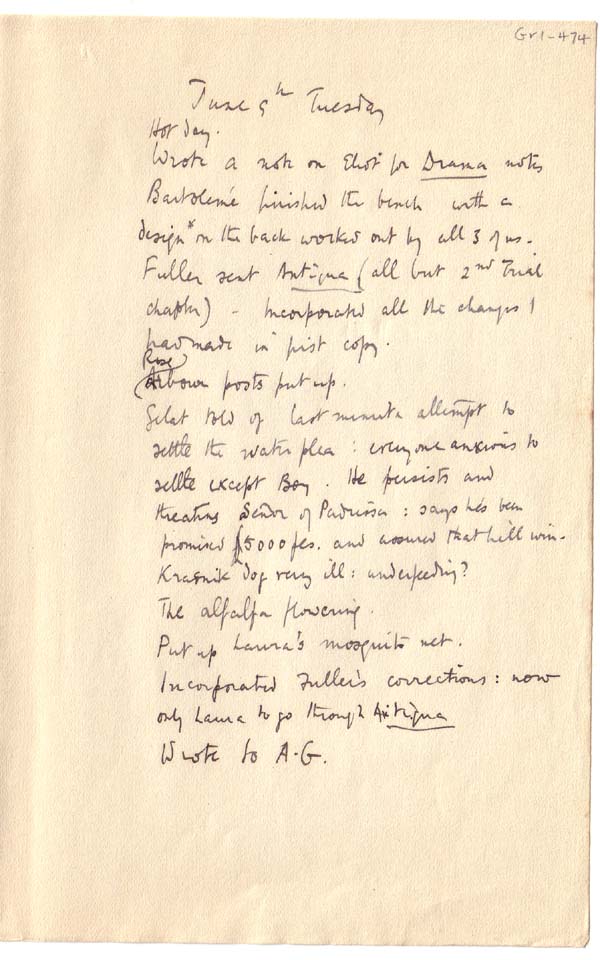 Gr1-474
June 9th Tuesday
Hot day.
Wrote a note on Eliot for Drama notes
Bartolomé finished the bench with a
design* on the back worked out by all 3 of us.
Fuller sent Antigua (all but 2nd Trial
chapter) - Incorporated all the changes I
had made in first copy.
Rose
Arbour posts put up.
Gelat told of last minute attempt to
settle the water plea : everyone anxious to
settle except Boy. He persists and
threatens Señor of Padrissa : says he's been
promised 5000 pes. and assured that he'll win.
Krasnik dog very ill : underfeeding?
The alfalfa flowering.
Put up Laura's mosquito net.
Incorporated Fuller's corrections : now
only Laura to go through Antigua
Wrote to A.G.